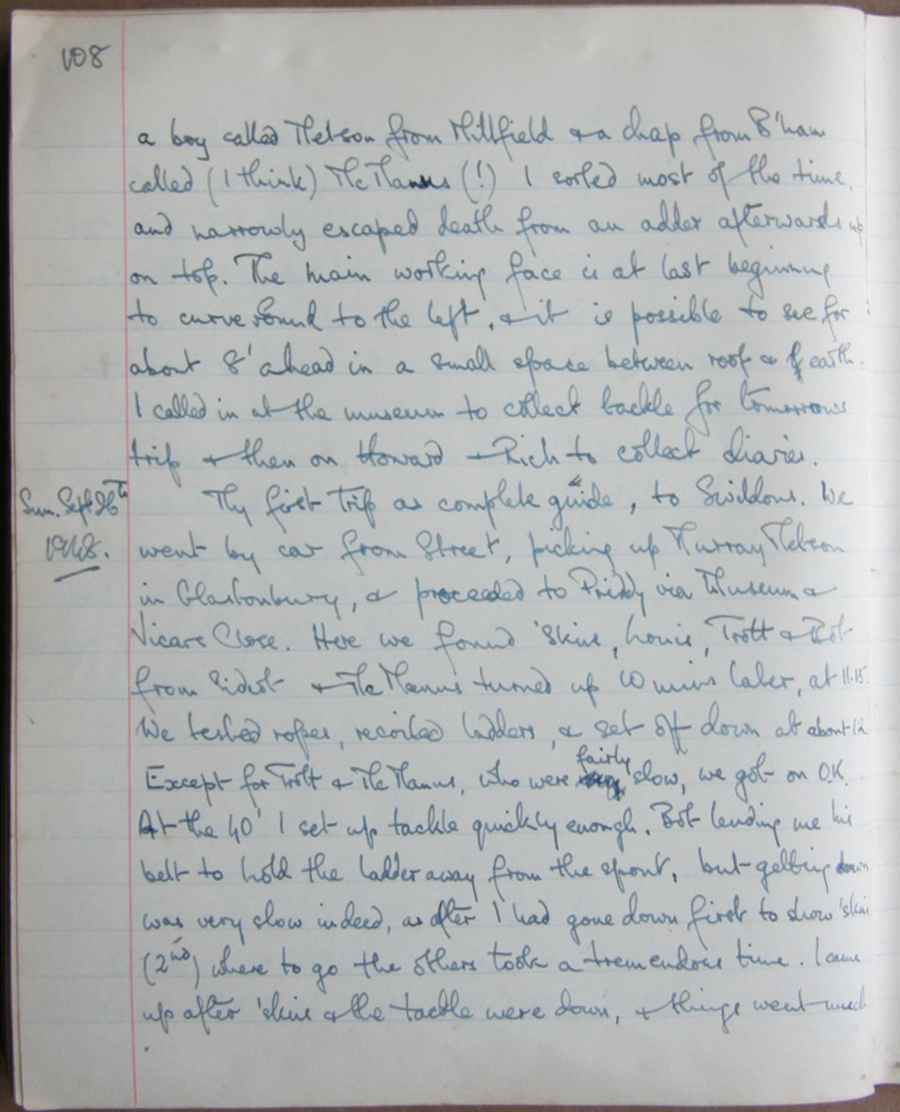 108
a boy called Nelson from Millfield & a chap from B'ham
called (I think) McManus (!) I sorted most of the time,
and narrowly escaped death from an adder afterwards up
on top. The main working face is at last beginning
to curve round to the left, & it is possible to see for
about 8' ahead in a small space between roof & earth.
I called in at the museum to collect tackle for tomorrows
trip & then on Howard & Rich to collect diaries.
Sun. Sept 26th
1948.
My first trip as complete guide, to Swildons. We
went by car from Street, picking up Murray Nelson
in Glastonbury, & proceeded to Priddy via Museum &
Vicars Close. Here we found 'Skins, Louis, Trott & Bot
from Sidcot & McManus turned up 10 mins later, at 11.15.
We tested ropes, recoiled ladders, & set off down at about
Except for Trott & McManus, who were fairly slow, we got on O.K.
At the 40' I set up tackle quickly enough, Bot lending me his
belt to hold the ladder away from the spout, but getting down
was very slow indeed, as after I had gone down first to show 'Skins
(2nd) where to go the others took a tremendous time. I came
up after 'Skins & the tackle were down, & things went much